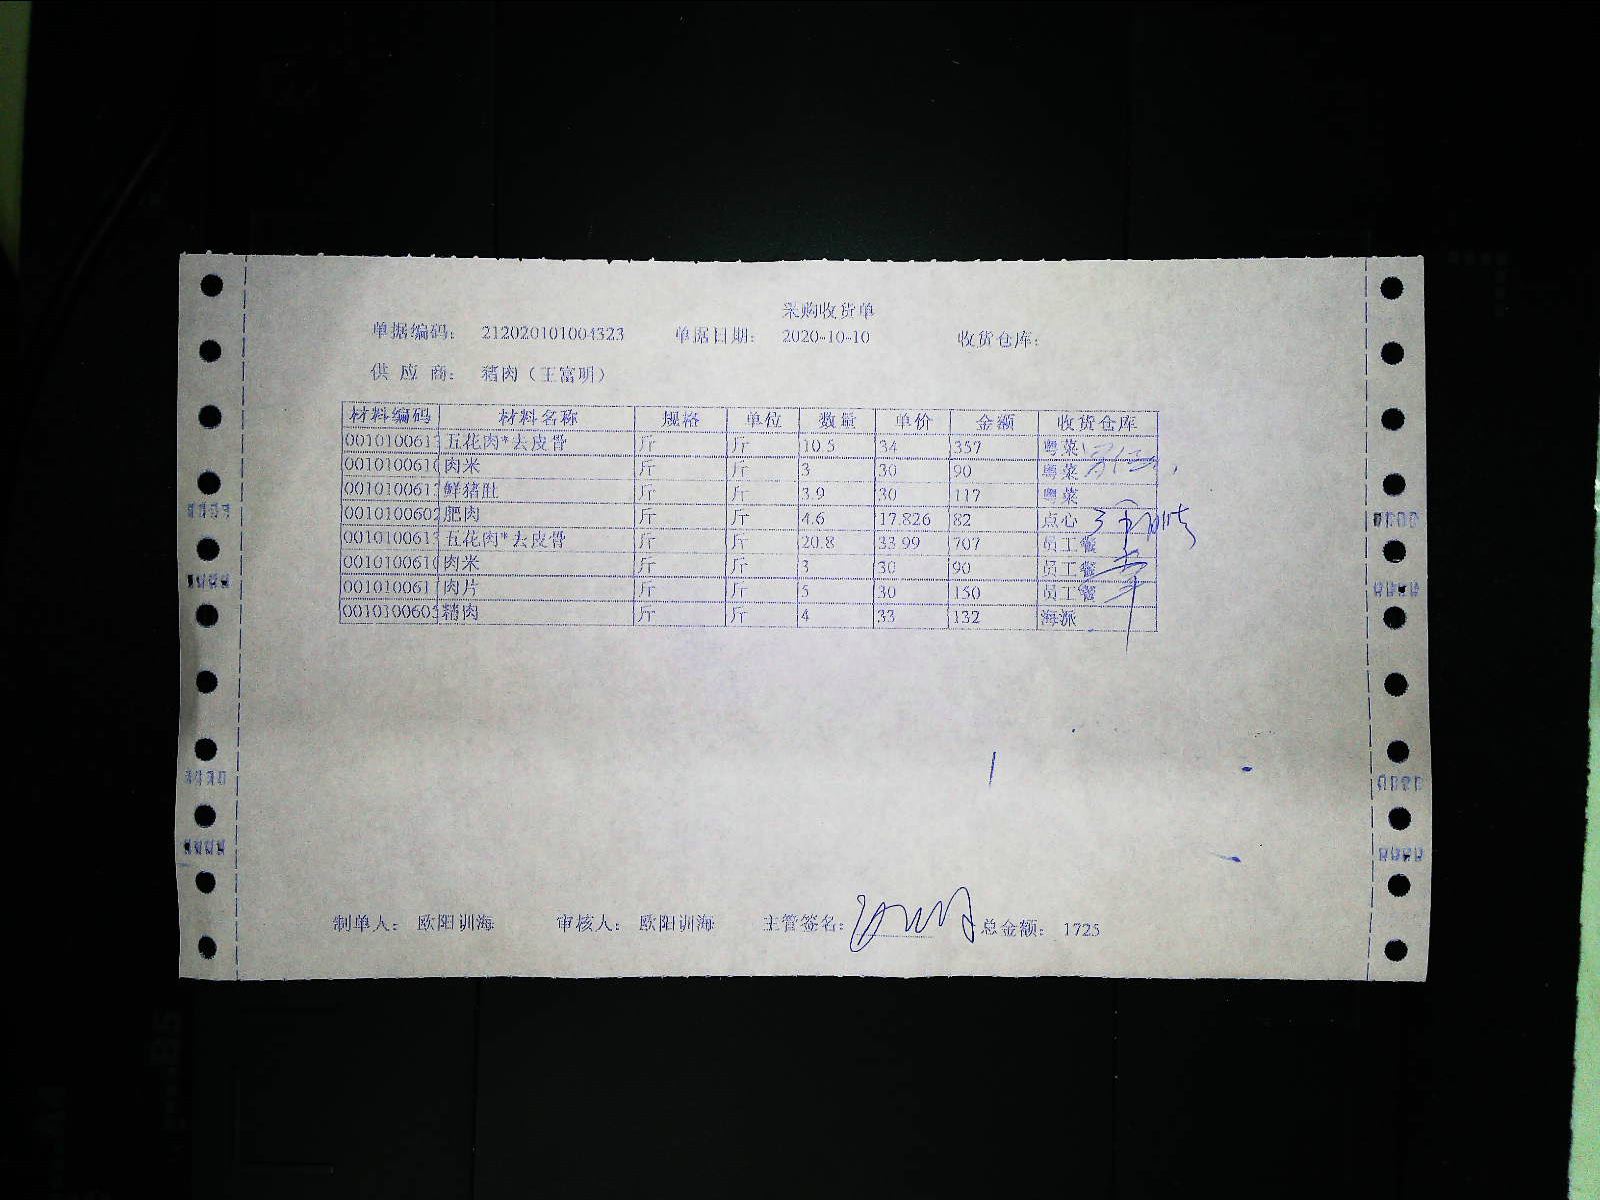 采购收货单
单据编码： 212020101004323 单据日期： 2020-10-10 收货仓库：
供 应 商： 猪肉（王富明）
材料编码 材料名称 规格 单位 数量 单价 金额 收货仓库
001010061 五花肉*去皮骨 斤 斤 10.5 34 357 粤菜
001010061 肉米 斤 斤 3 30 90 粤菜
001010061 鲜猪肚 斤 斤 3.9 30 117 粤菜
001010060 肥肉 斤 斤 4.6 17.826 82 点心
001010061 五花肉*去皮骨 斤 斤 20.8 33.99 707 员工餐
001010061 肉米 斤 斤 3 30 90 员工餐
001010061 肉片 斤 斤 5 30 150 员工餐
001010060 精肉 斤 斤 4 33 132 海派
制单人： 欧阳训海 审核人： 欧阳训海 主管签名： 总金额： 1725